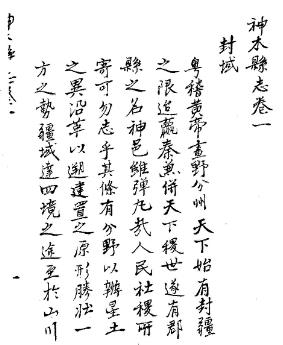 神木縣志卷一
封域
粵稽黃帝畫野分州天下始有封疆
之限迨嬴秦兼併天下稷世遂有郡
縣之名神邑維彈丸哉人民社稷所
寄可勿志乎其條有分野以辨星土
之異沿革以溯建置之原形勝壯一
方之勢疆域達四境之途至於山川